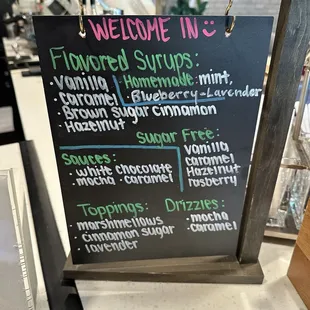 WELCOME IN :)
Flavored Syrups:
• Vanilla
• caramel
• Brown sugar cinnamon
• Hazelnut
Homemade: mint,
Blueberry-Lavender
Sugar Free:
Vanilla
caramel
Hazelnut
rasberry
Sauces:
• white chocolate
• mocha • caramel
Toppings:
• marshmellows
• cinnamon sugar
• lavender
Drizzles:
• mocha
• caramel